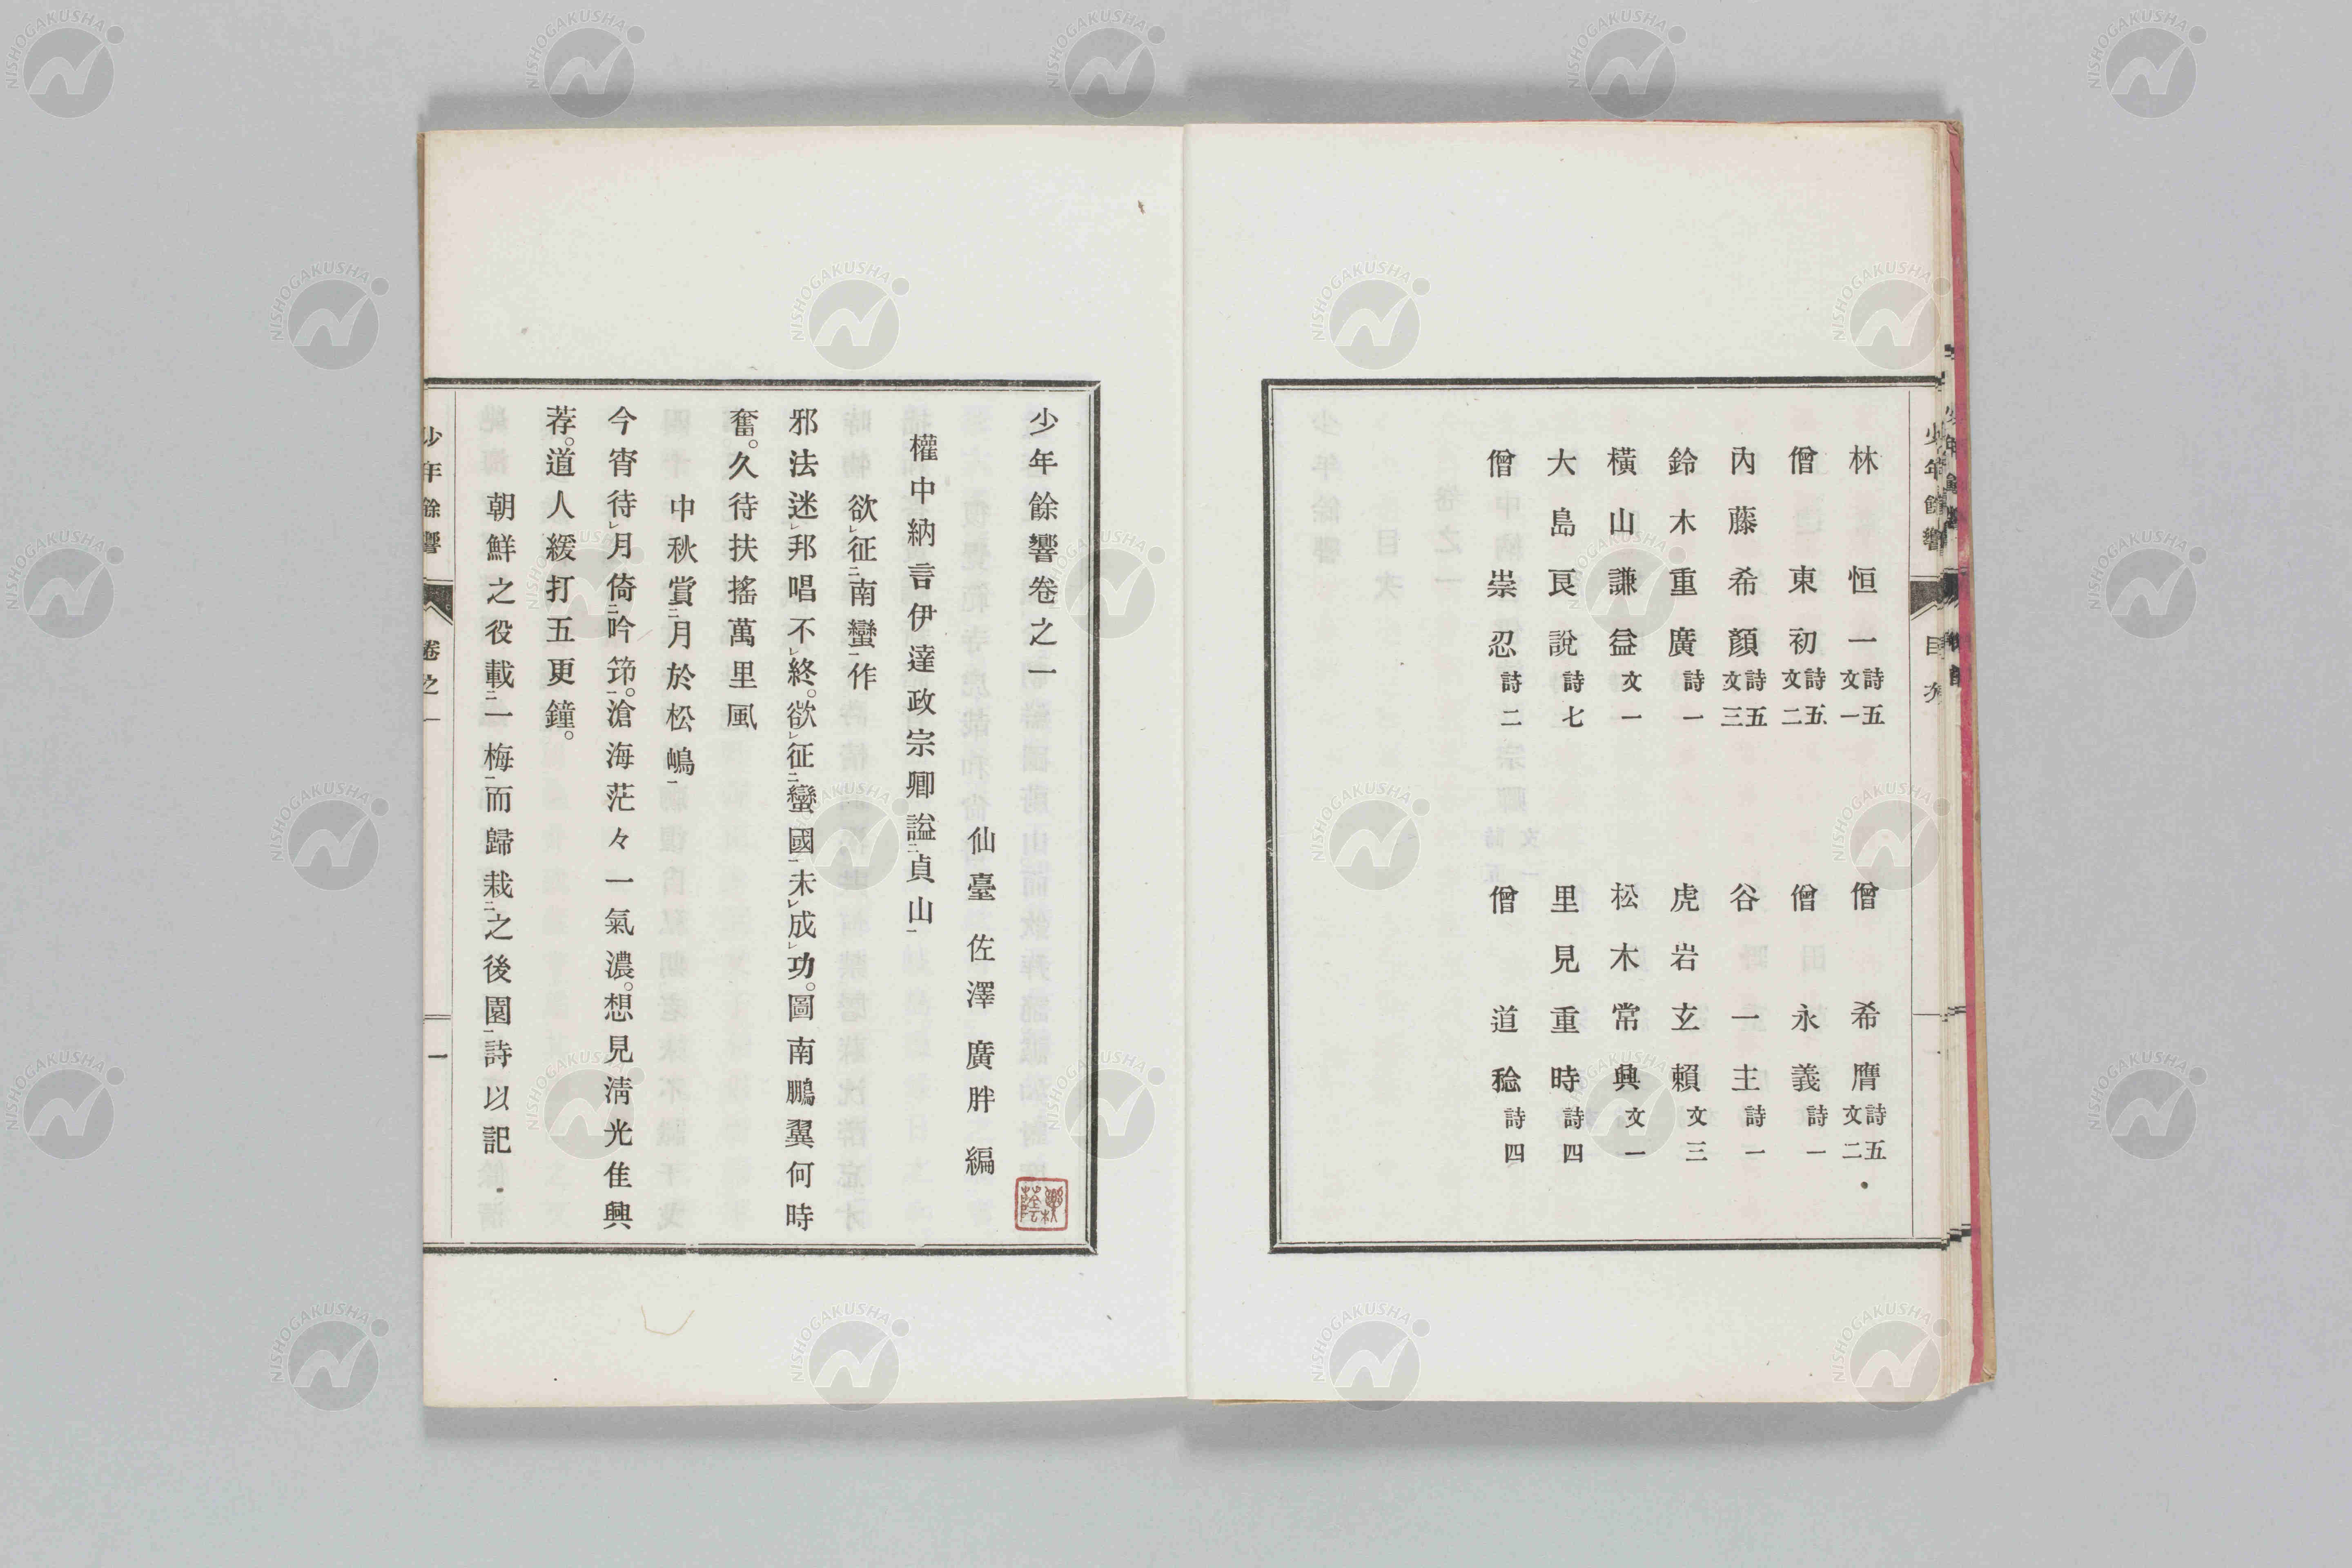 林恒一 詩五 文一
僧希膺 詩五 文二
僧東初 詩五 文二
僧永義 詩一
內藤希顏 詩五 文三
谷一主 詩一
鈴木重廣 詩一
虎岩玄賴 文三
橫山謙益 文一
松木常興 文一
大島良說 詩七
里見重時 詩四
僧崇忍 詩二
僧道稔 詩四
少年餘響 目次
少年餘響卷之一
仙臺 佐澤廣胖 編
權中納言伊達政宗卿謚二貞山一
欲レ征二南蠻一作
邪法迷レ邦唱不レ終。欲レ征二蠻國一未レ成レ功。圖南鵬翼何時
奮。久待扶搖萬里風
中秋賞二月於松嶋一
今宵待レ月倚二吟筇一。滄海茫々一氣濃。想見淸光佳興
荐。道人緩打五更鐘。
朝鮮之役載二一梅一而歸栽二之後園一詩以記
少年餘響 卷之一 一
NISHOGAKUSHA